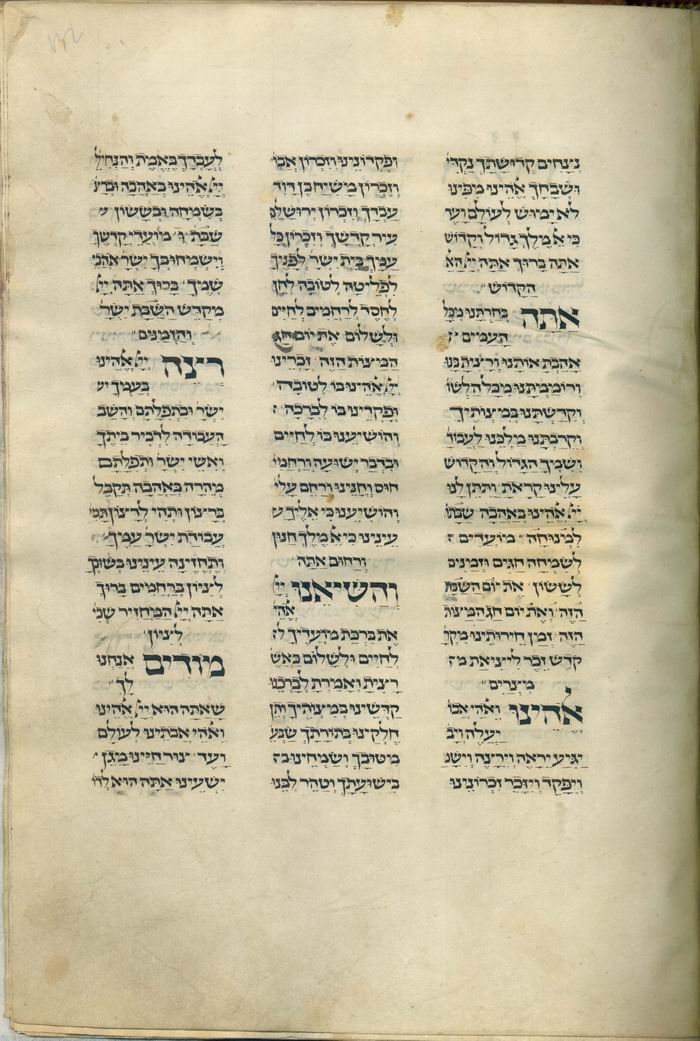 נצחים קדושתך נקדי
ושבחך אלהינו מפינו
לא ימוש לעולם ועד
כי אל מלך גדול וקדוש
אתה ברוך אתה ייי האל
הקדוש
אתה בחרתנו מכל
העמים
אהבת אותנו ורצית בנו
ורוממתנו מכל הלשו
וקדשתנו במצותיך
וקרבתנו מלכנו לעבוד
ושמך הגדול והקדוש
עלינו קראת ותתן לנו
ייי אלהינו באהבה שבתו
למנוחה מועדים
לשמחה חגים וזמנים
לששון את יום השבת
הזה ואת יום חג המצות
הזה זמן חירותינו מקר
קדש זכר ליציאת מ
מצרים
אלהינו ואלהי אבו
יעלה ויב
יגיע יראה וירצה וישמ
ויפקד ויזכר זכרונינו
ופקדונינו וזכרון אבו
וזכרון משיח בן דוד
עבדך וזכרון ירושלם
עיר קדשך וזכרון כל
עמך בית ישר לפניך
לפליטה לטובה לחן
לחסד לרחמים לחיים
ולשלום את יום חג
המצות הזה זכרינו
ייי אלהינו בו לטובה
ופקדינו בו לברכה
והושיענו בו לחיים
ובדבר ישועה ורחמי
חוס וחנינו ורחם עלי
והושיענו כי אליך ע
עינינו כי אל מלך חנון
ורחום אתה
והשיאנו ייי
אלהי
את ברכת מועדיך ל
לחיים ולשלום כאש
רצית ואמרת לברכנו
קדשינו במצותיך ותן
חלקינו בתורתך שבע
מטובך ושמחינו ב
בישועתך וטהר לבנו
לעבדך באמת והנחיל
ייי אלהינו באהבה וברצ
בשמחה ובששון
שבת ו מועדי קדשך
וישמחו בך ישר אהבי
שמיך ברוך אתה ייי
מקדש השבת ישר
והזמנים
רצה ייי אלהינו
בעמיך יש
ישר ובתפלתם והשב
העבודה לדביר ביתך
ואשי ישר ותפלתם
מהרה באהבה תקבל
ברצון ותהי לרצון תמי
עבודת ישר עמיך
ותחזינה עינינו בשובך
לציון ברחמים ברוך
אתה ייי המחזיר שכי
לציון
מודים אנחנו
לך
שאתה הוא ייי אלהינו
ואלהי אבתינו לעולם
ועד צור חיינו מגן
ישעינו אתה הוא לדו